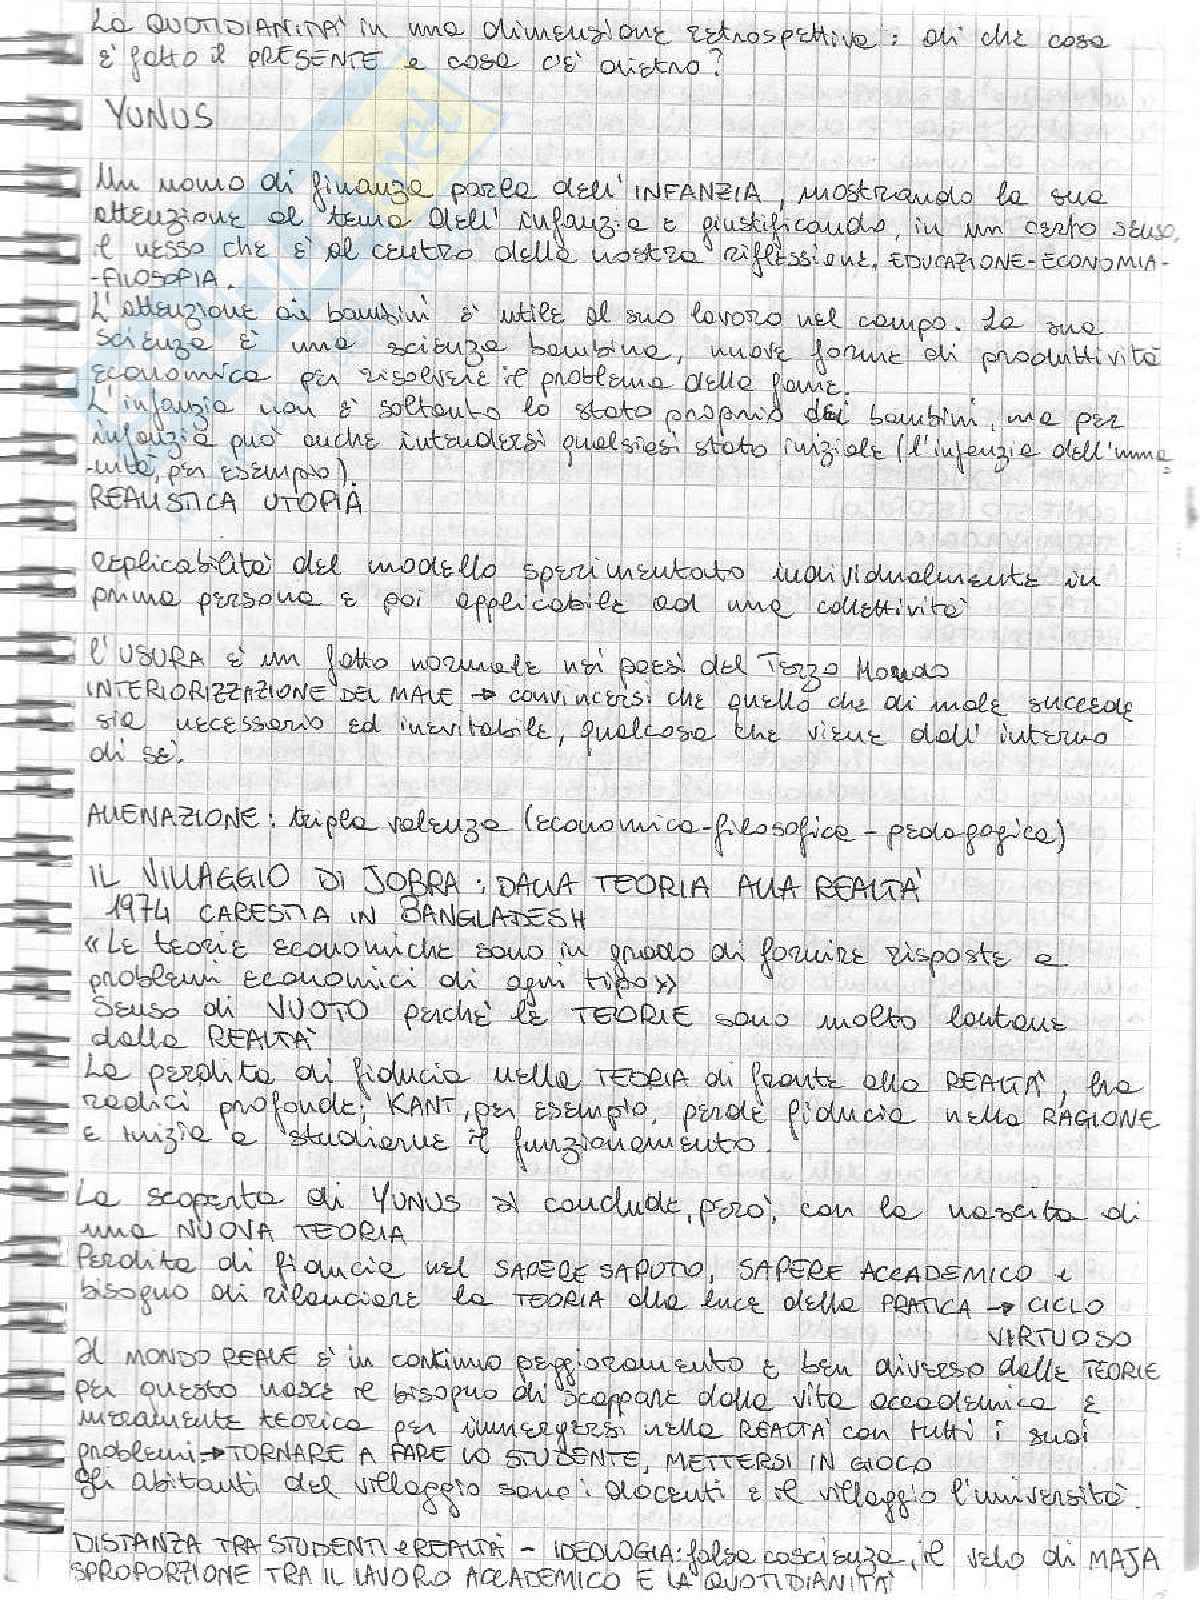 La QUOTIDIANITA' in una dimensione retrospettiva: di che cosa
è fatto il PRESENTE e cosa c'è dietro?
YUNUS
Un uomo di finanza parla dell'INFANZIA, mostrando la sua
attenzione al tema dell'infanzia e giustificando, in un certo senso,
il nesso che è al centro della nostra riflessione. EDUCAZIONE-ECONOMIA-
-FILOSOFIA.
L'attenzione ai bambini è utile al suo lavoro nel campo. La sua
scienza è una scienza bambina, nuove forme di produttività
economica per risolvere il problema della fame.
L'infanzia non è soltanto lo stato proprio dei bambini, ma per
infanzia può anche intendersi qualsiasi stato iniziale (l'infanzia dell'uma
-nità, per esempio).
REALISTICA UTOPIA
Replicabilità del modello sperimentato individualmente in
prima persona e poi applicabile ad una collettività
L'USURA è un fatto normale nei paesi del Terzo Mondo
INTERIORIZZAZIONE DEL MALE → convincersi che quello che di male succede
sia necessario ed inevitabile, qualcosa che viene dall'interno
di sé.
ALIENAZIONE: tripla valenza (economica-filosofica-pedagogica)
IL VILLAGGIO DI JOBRA: DALLA TEORIA ALLA REALTA'
1974 CARESTIA IN BANGLADESH
«Le teorie economiche sono in grado di fornire risposte a
problemi economici di ogni tipo»
Senso di VUOTO perché le TEORIE sono molto lontane
dalla REALTA'
La perdita di fiducia nella TEORIA di fronte alla REALTA', ha
radici profonde; KANT, per esempio, perde fiducia nella RAGIONE
e inizia a studiarne il funzionamento.
La scoperta di YUNUS si conclude, però, con la nascita di
una NUOVA TEORIA
Perdita di fiducia nel SAPERE SAPUTO, SAPERE ACCADEMICO e
bisogno di rilanciare la TEORIA alla luce della PRATICA → CICLO
VIRTUOSO
Il MONDO REALE è in continuo peggioramento e ben diverso dalle TEORIE
per questo nasce il bisogno di scappare dalla vita accademica e
meramente teorica per immergersi nella REALTA' con tutti i suoi
problemi → TORNARE A FARE LO STUDENTE, METTERSI IN GIOCO
gli abitanti del villaggio sono i docenti e il villaggio l'università.
DISTANZA TRA STUDENTI e REALTA' - IDEOLOGIA: falsa coscienza, il velo di MAJA
SPROPORZIONE TRA IL LAVORO ACCADEMICO E LA QUOTIDIANITA'